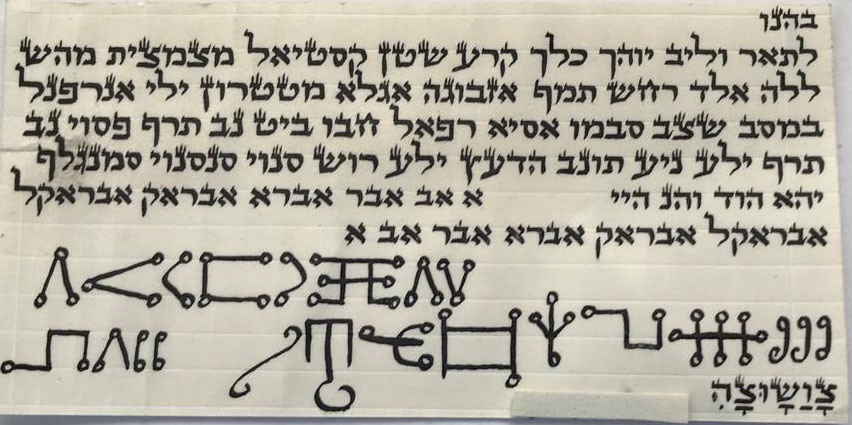 בהנו
לתאר וליב יוהך כלך קרע שטן קסטיאל מצמצית מהש
ללה אלד רחש תמף אזבוגה אגלא מטטרון ילי אנרפנל
במסב שצב סבמו אסיא רפאל חבו ביט נב תרף פסוי נב
תרף ילע ניע תונב ילע רוש סנוי סנסנוי סמנגלף
יהא הוד והנ היי א אב אבר אברא אבראק אבראקל
אבראקל אבראק אברא אבר אב א